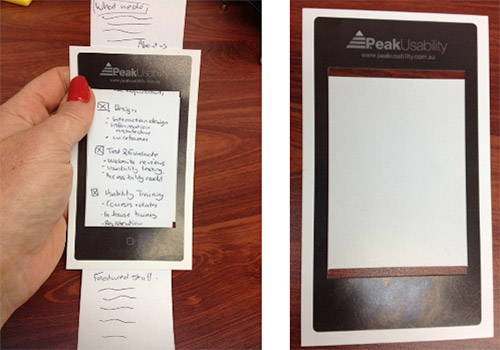 What we do
About us
PeakUsability
www.peakusability.com.au
Design
- Interaction design
information
architecture
- wireframes
Test & Evaluate
- Website reviews
- Usability testing
- Accessibility
Usability Training
- Courses + dates
- In house training
- Registration
Featured staff
PeakUsability
www.peakusability.com.au